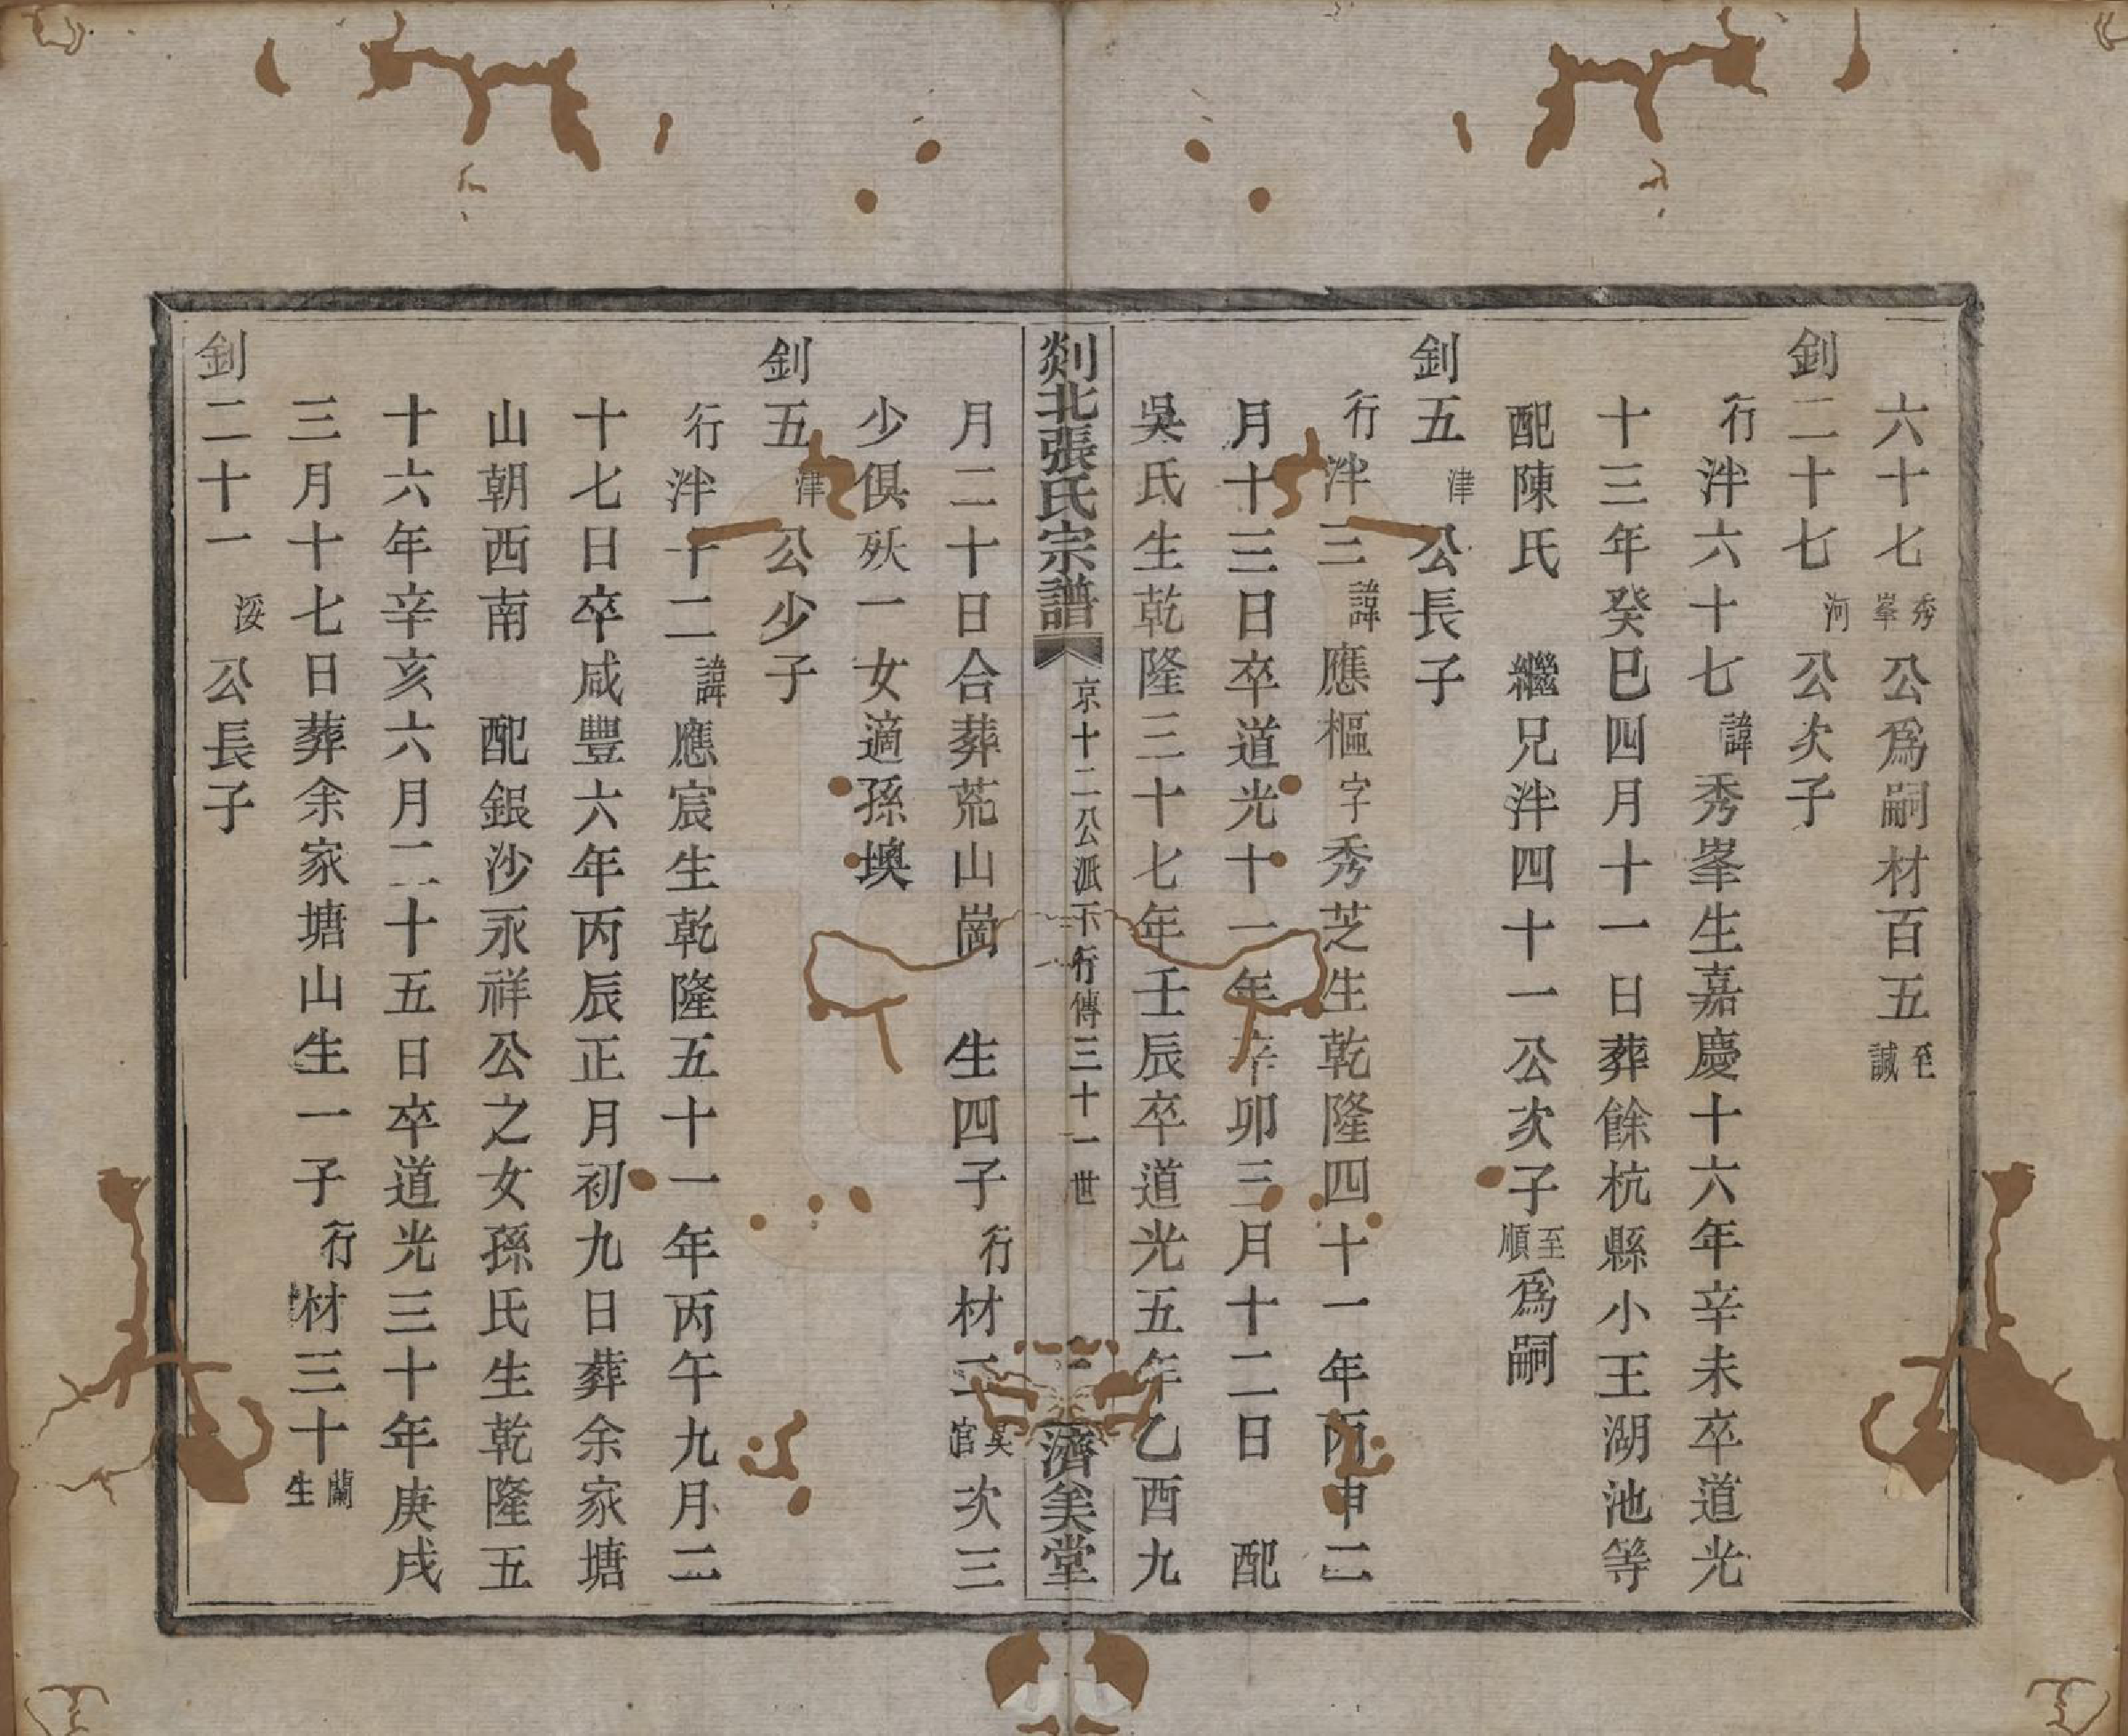 六十七秀峯公爲嗣材百五至誠
釗二十七河公次子
行泮六十七諱秀峯生嘉慶十六年辛未卒道光
十三年癸巳四月十一日葬餘杭縣小王湖池等
配陳氏　繼兄泮四十一公次子至順爲嗣
釗五津公長子
行泮三諱應樞字秀芝生乾隆四十一年丙申二
月十三日卒道光十一年辛卯三月十二日　配
吳氏生乾隆三十七年壬辰卒道光五年乙酉九
剡北張氏宗譜　京十二公派下行傳三十一世　濟美堂
月二十日合葬荒山崗　生四子行材官次三
少俱殀一女適孫墺
釗五津公少子
行泮十二諱應宸生乾隆五十一年丙午九月二
十七日卒咸豐六年丙辰正月初九日葬余家塘
山朝西南　配銀沙永祥公之女孫氏生乾隆五
十六年辛亥六月二十五日卒道光三十年庚戌
三月十七日葬余家塘山生一子行材三十蘭生
釗二十一浽公長子